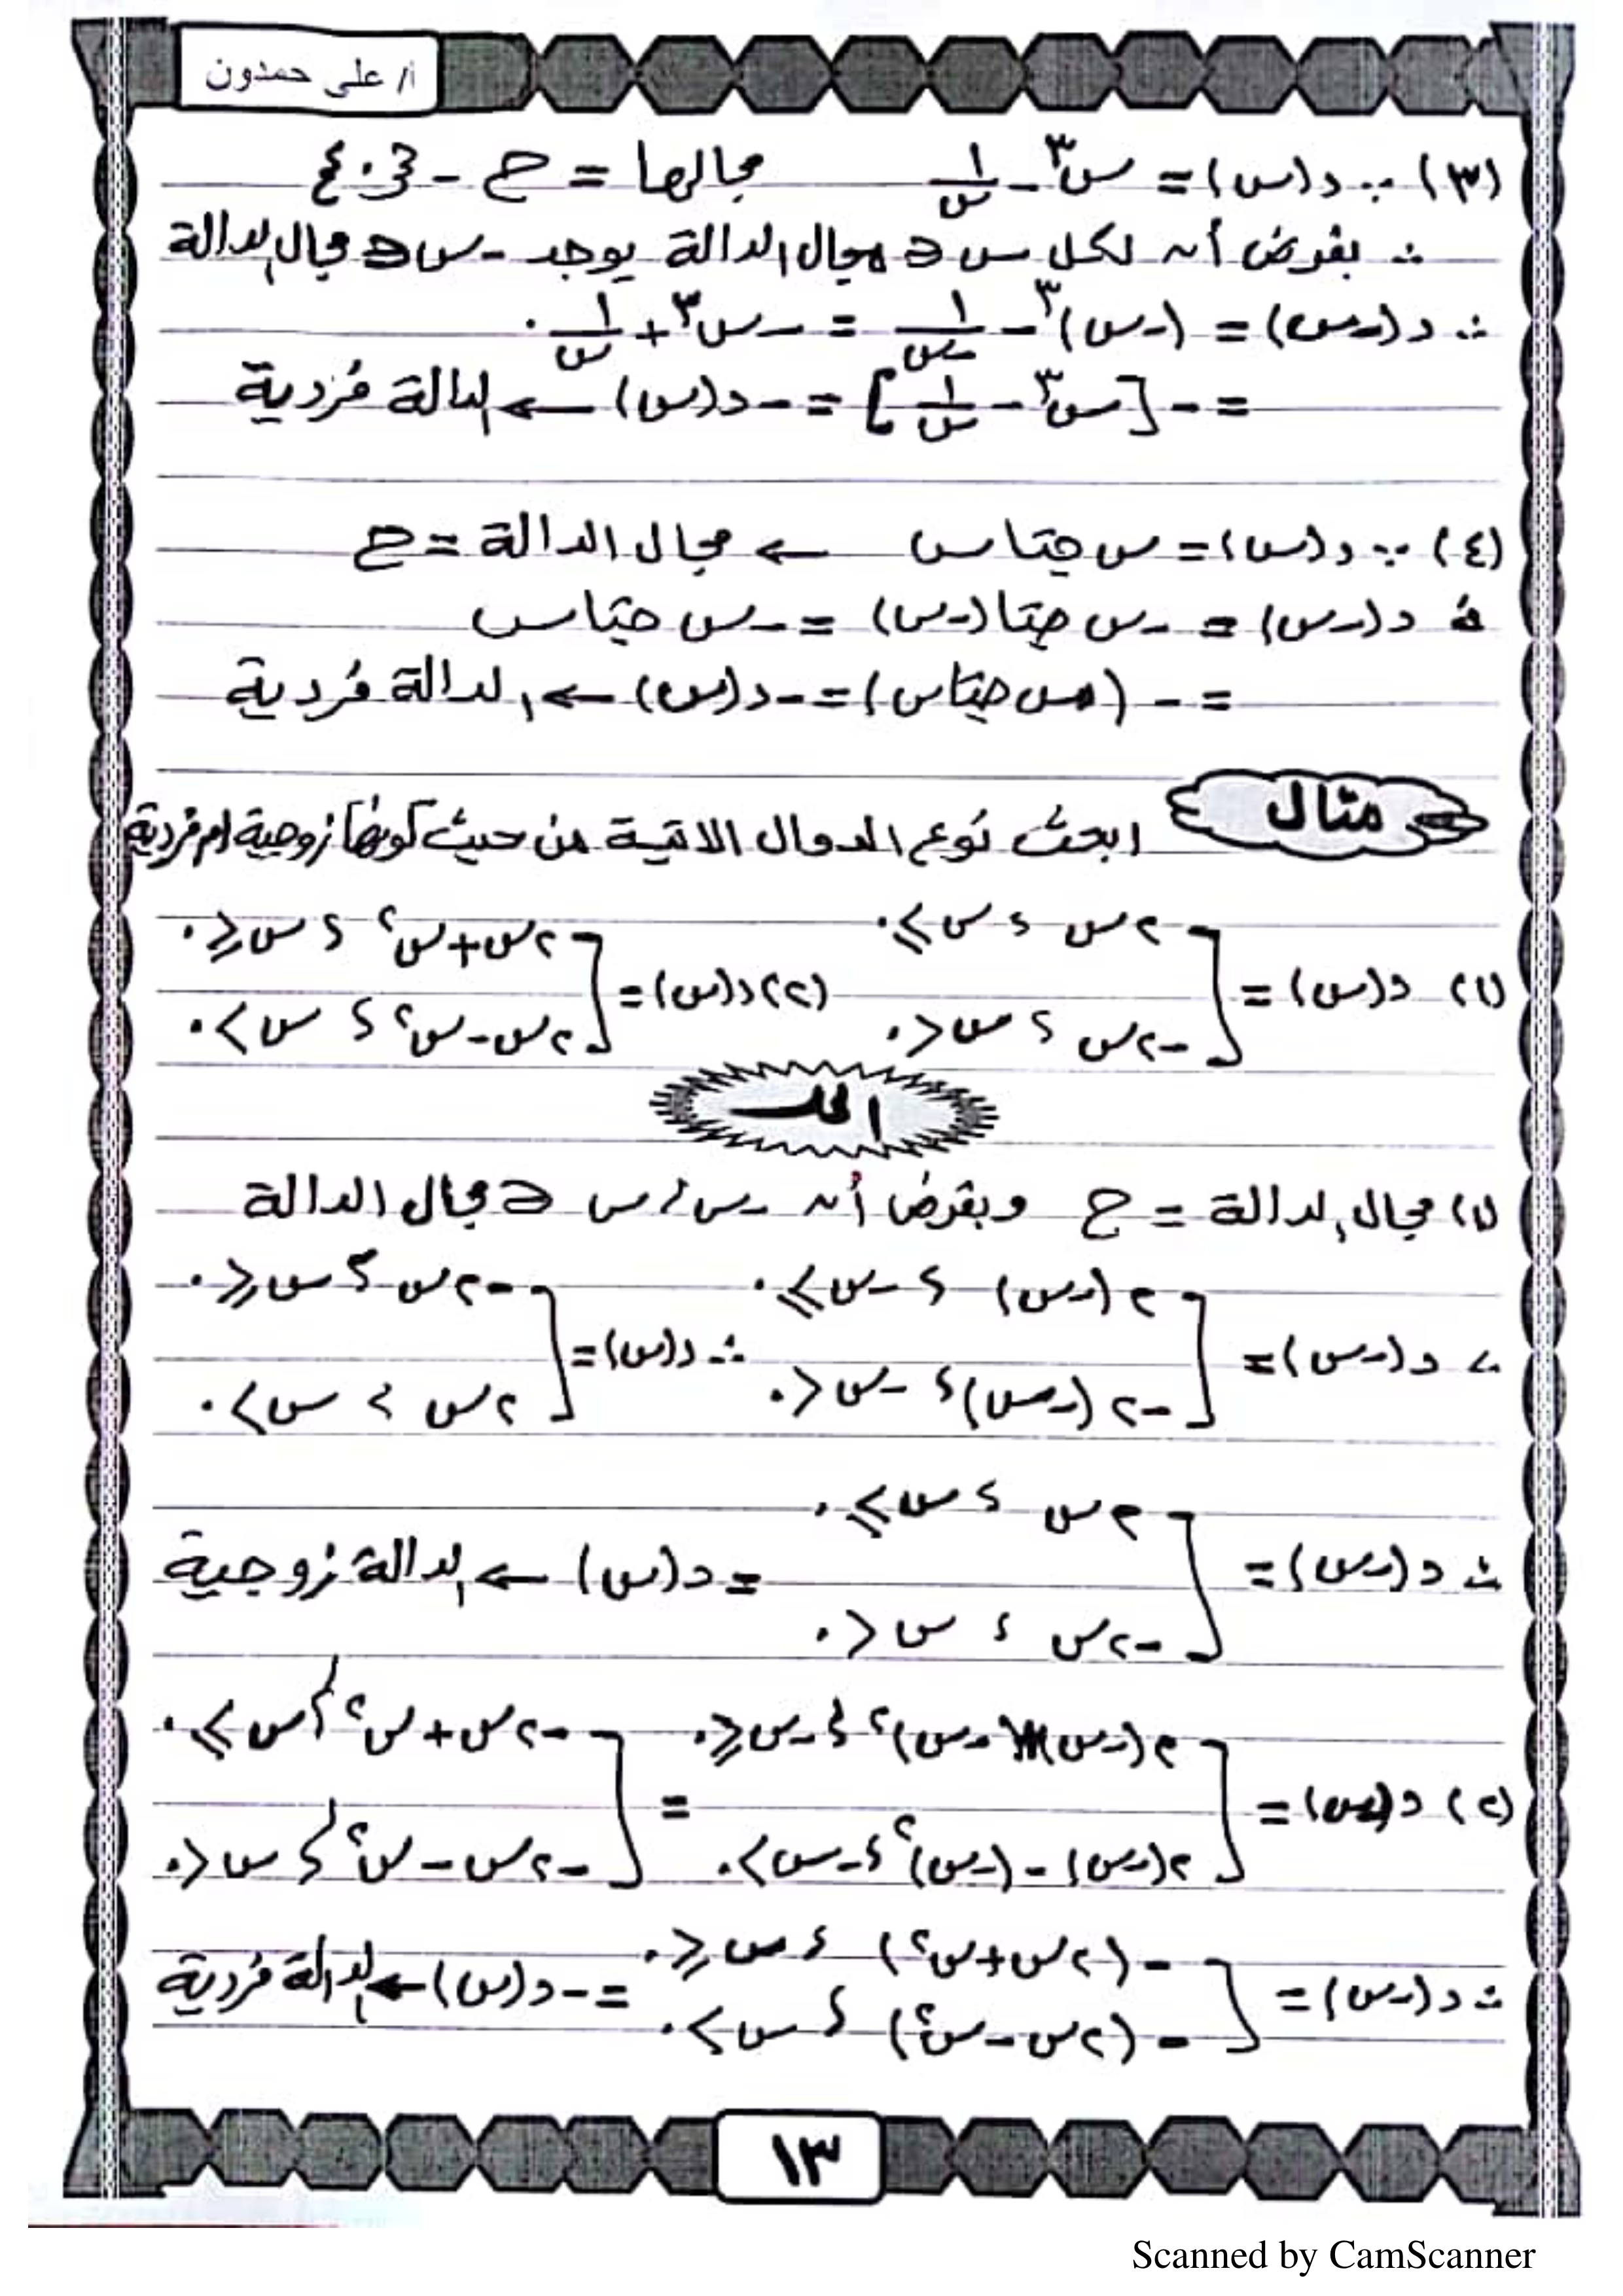 أ/ على حمدون
(٣) ∵ د(س) = س^٣ - ١/س مجالها = ح - {٠}
∴ بفرض أن لكل س ∈ مجال الدالة يوجد -س ∈ مجال الدالة
∴ د(-س) = (-س)^٣ - ١/-س = -س^٣ + ١/س .
= - [س^٣ - ١/س] = - د(س) ← الدالة فردية
(٤) ∵ د(س) = س جتا س ← مجال الدالة = ح
∴ د(-س) = -س جتا(-س) = -س جتا س
= - (س جتا س) = - د(س) ← الدالة فردية
مثال ابحث نوع الدوال الاتية من حيث كونها زوجية ام فردية
(١) د(س) = [ ٢س ؛ س ≥ ٠
-٢س ؛ س < ٠
(٢) د(س) = [ ٢س + س^٢ ؛ س ≤ ٠
٢س - س^٢ ؛ س > ٠
الحل
(١) مجال الدالة = ح وبفرض أن -س ، س ∈ مجال الدالة
، د(-س) = [ ٢(-س) ؛ -س ≥ ٠
-٢(-س) ؛ -س < ٠
∴ د(-س) = [ -٢س ؛ س ≤ ٠
٢س ؛ س > ٠
∴ د(-س) = [ ٢س ؛ س ≥ ٠
-٢س ؛ س < ٠
= د(س) ← الدالة زوجية
(٢) د(-س) = [ ٢(-س) (-س)^٢ ؛ -س ≤ ٠
٢(-س) - (-س)^٢ ؛ -س > ٠
= [ -٢س + س^٢ ؛ س ≥ ٠
-٢س - س^٢ ؛ س < ٠
∴ د(-س) = [ - (٢س + س^٢) ؛ س ≤ ٠
- (٢س - س^٢) ؛ س > ٠
= - د(س) ← الدالة فردية
١٣
Scanned by CamScanner